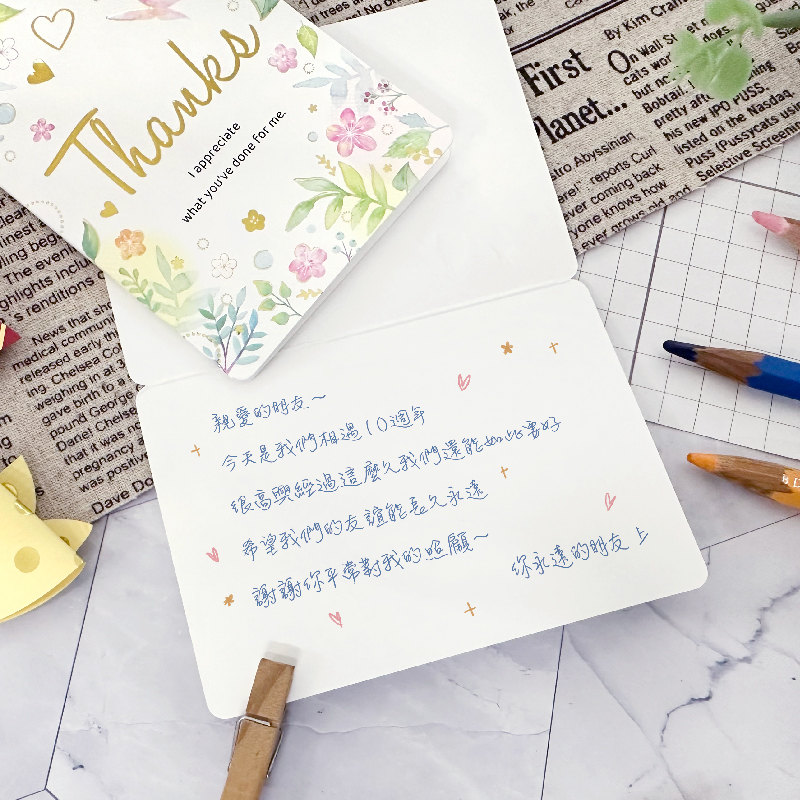 Thanks
I appreciate
what you've done for me.
親愛的朋友.~
今天是我們相遇10週年
很高興經過這麼久我們還能如此要好
希望我們的友誼能長久永遠
謝謝你平常對我的照顧~
你永遠的朋友 上
First
Planet...
By Kim Cram
On Wall St
Cats wor
dogs.
but no
Bobtail.
pretty after
his new IPO PUSS.
listed on the Nasdaq,
Puss (Pussycats using
Selective Screening
stro Abyssinian
reports Curl
ever coming back
yone knows how
News that
medical commun
released early th
ing. Chelsea Co
weighing in at
gave birth to a
pound George
Dariel Chelse
that it was no
pregnancy
was positive
Dave Do
finest
ling beg
The eveni
ghlights inclu
's renditions